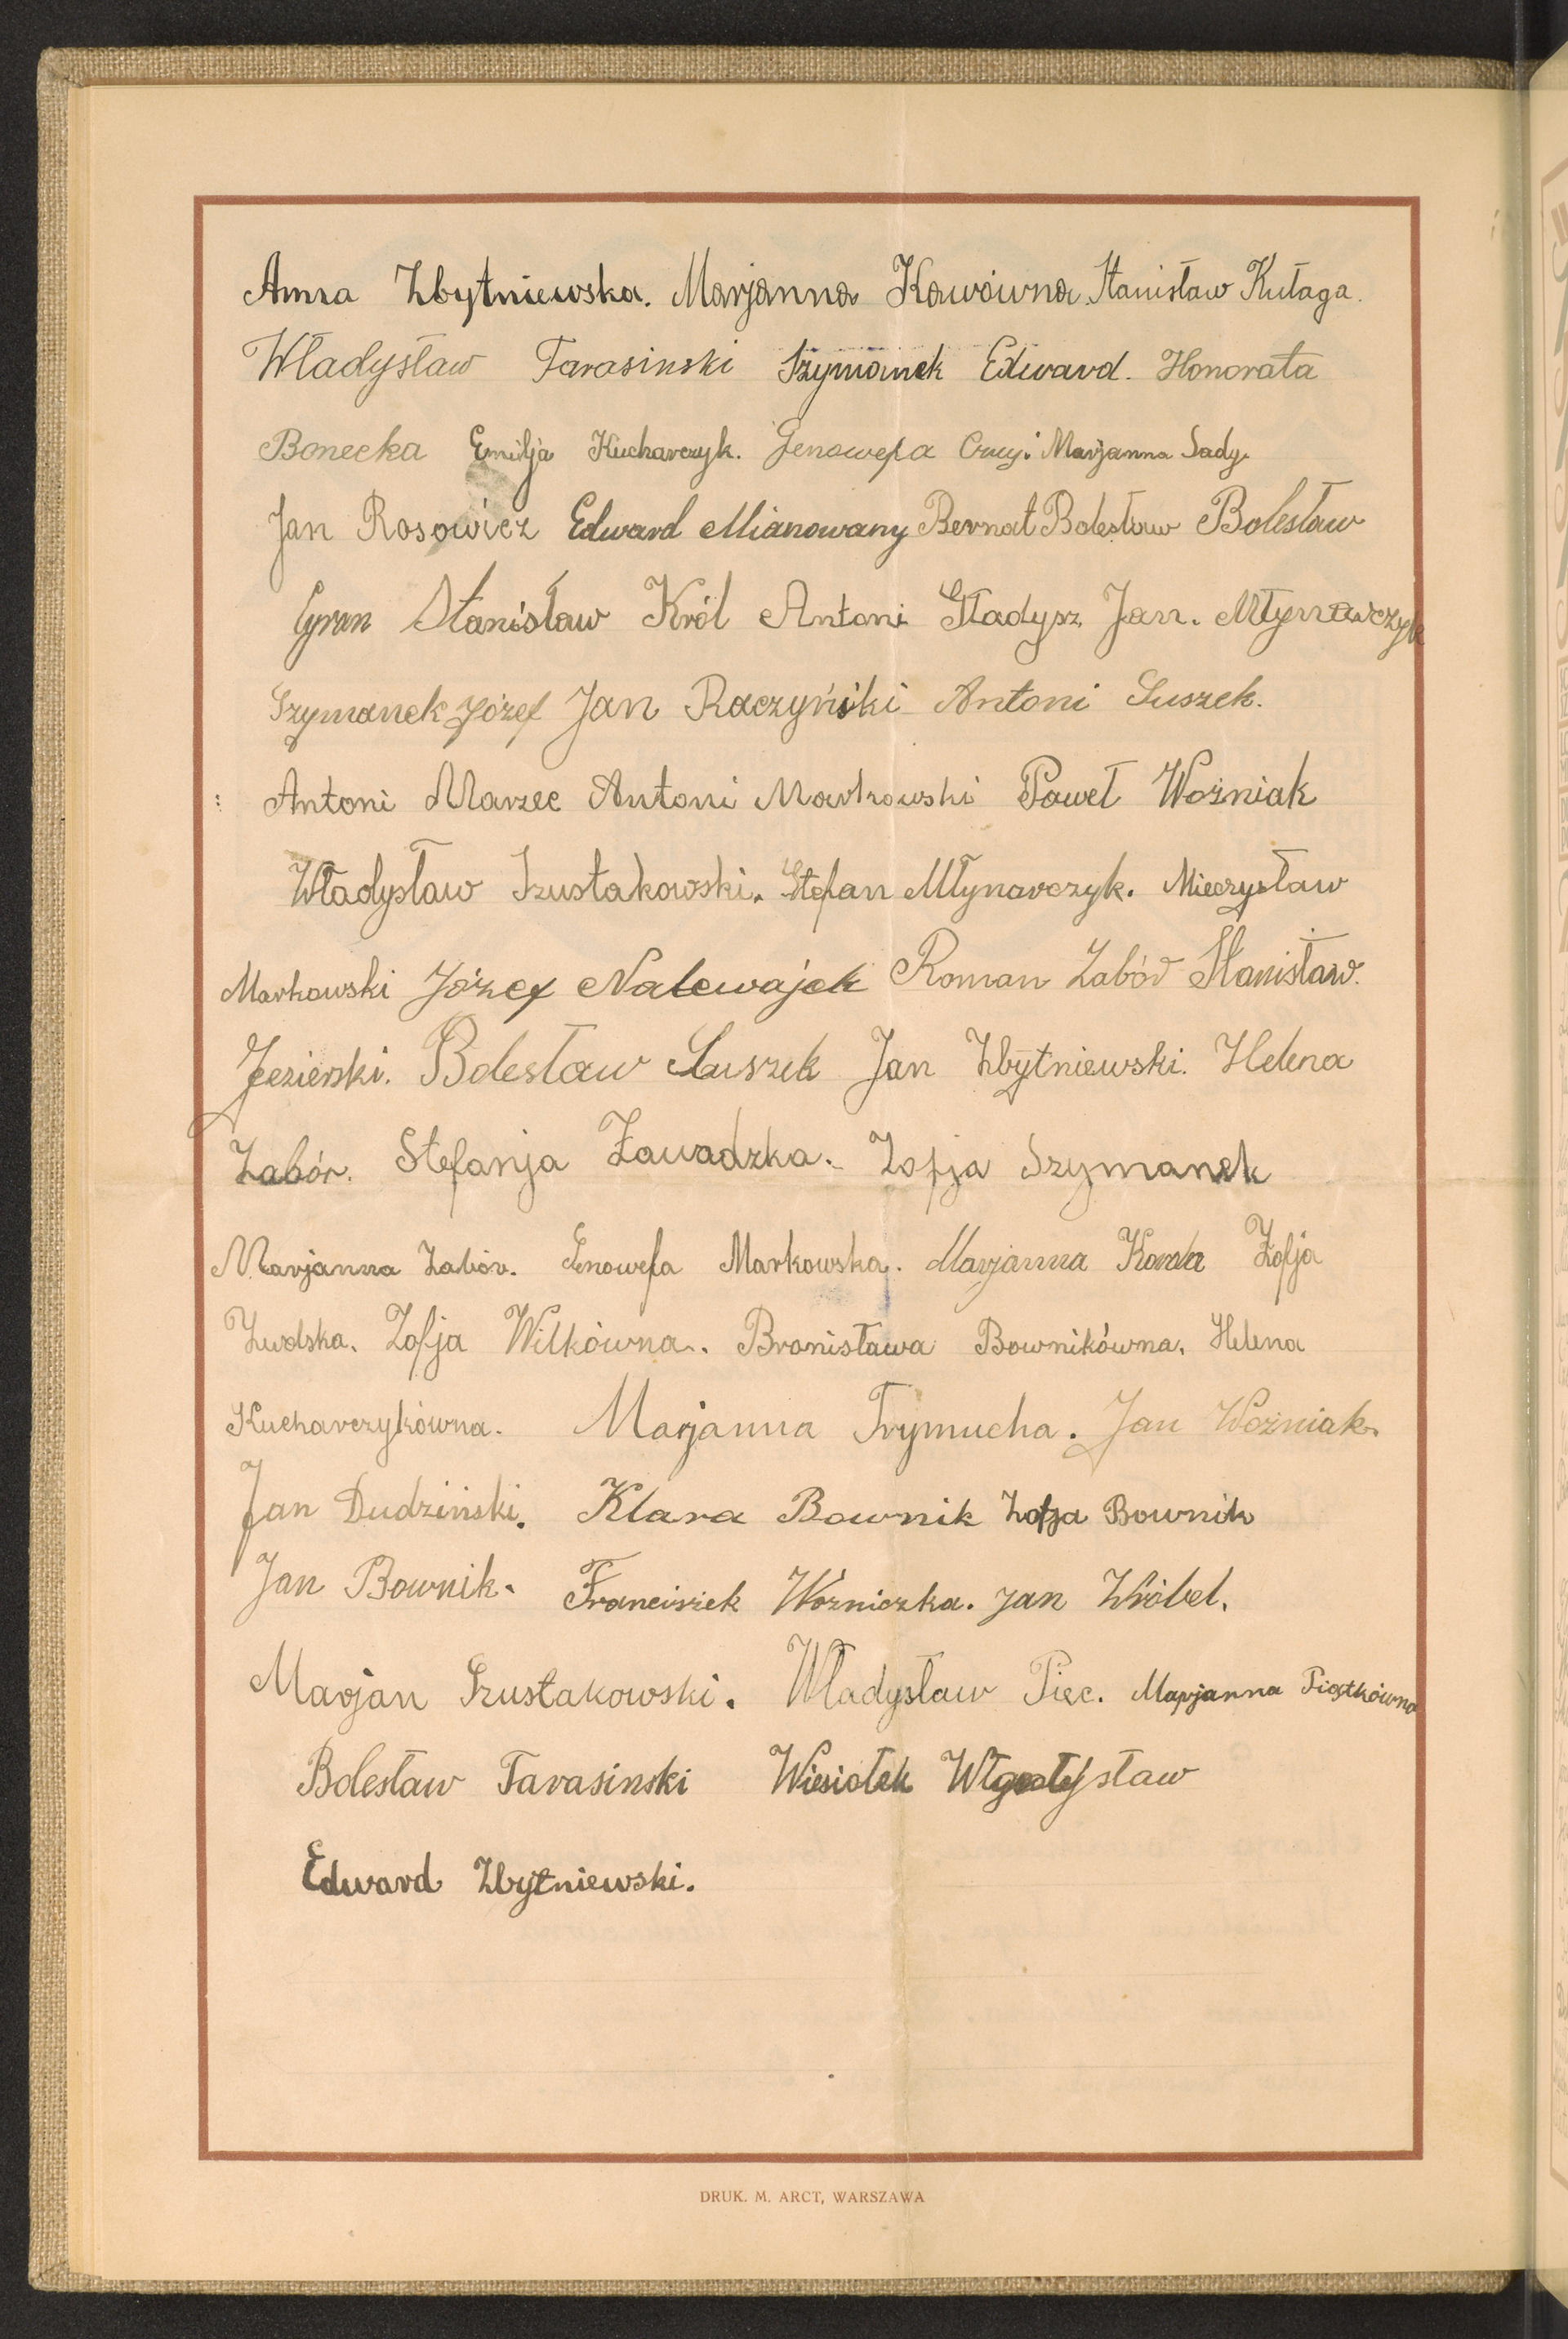 Anna Zbytniewska. Marjanna Kawówna. Stanisław Kułaga.
Władysław Tarasinski Szymanek Edward. Honorata
Bonecka Emilja Kucharczyk. Genowefa Marjanna Sady.
Jan Rosowicz Edward Mianowany Bernat Bolesław Bolesław
Cyran Stanisław Król Antoni Gładysz Jan. Młynarczyk
Szymanek Józef Jan Raczyński Antoni Suszek.
Antoni Marzec Antoni Markowski Paweł Woźniak
Władysław Szustakowski. Stefan Młynarczyk. Mieczysław
Markowski Józef Nalewajek Roman Zabór Stanisław.
Jezierski. Bolesław Suszek Jan Zbytniewski. Helena
Zabór. Stefanja Zawadzka. Zofja Szymanek
Marjanna Zabór. Genowefa Markowska. Marjanna Zofja
Zwolska. Zofja Wilkówna. Bronisława Bownikówna. Helena
Kucharczykówna. Marjanna Trymucha. Jan Woźniak.
Jan Dudziński. Klara Bownik Zofja Bownik
Jan Bownik. Franciszek Woźniczka. Jan Wróbel.
Marjan Szustakowski. Władysław Piec. Marjanna Piostkówna
Bolesław Tarasinski Wiesiołek
Edward Zbytniewski.
DRUK. M. ARCT, WARSZAWA